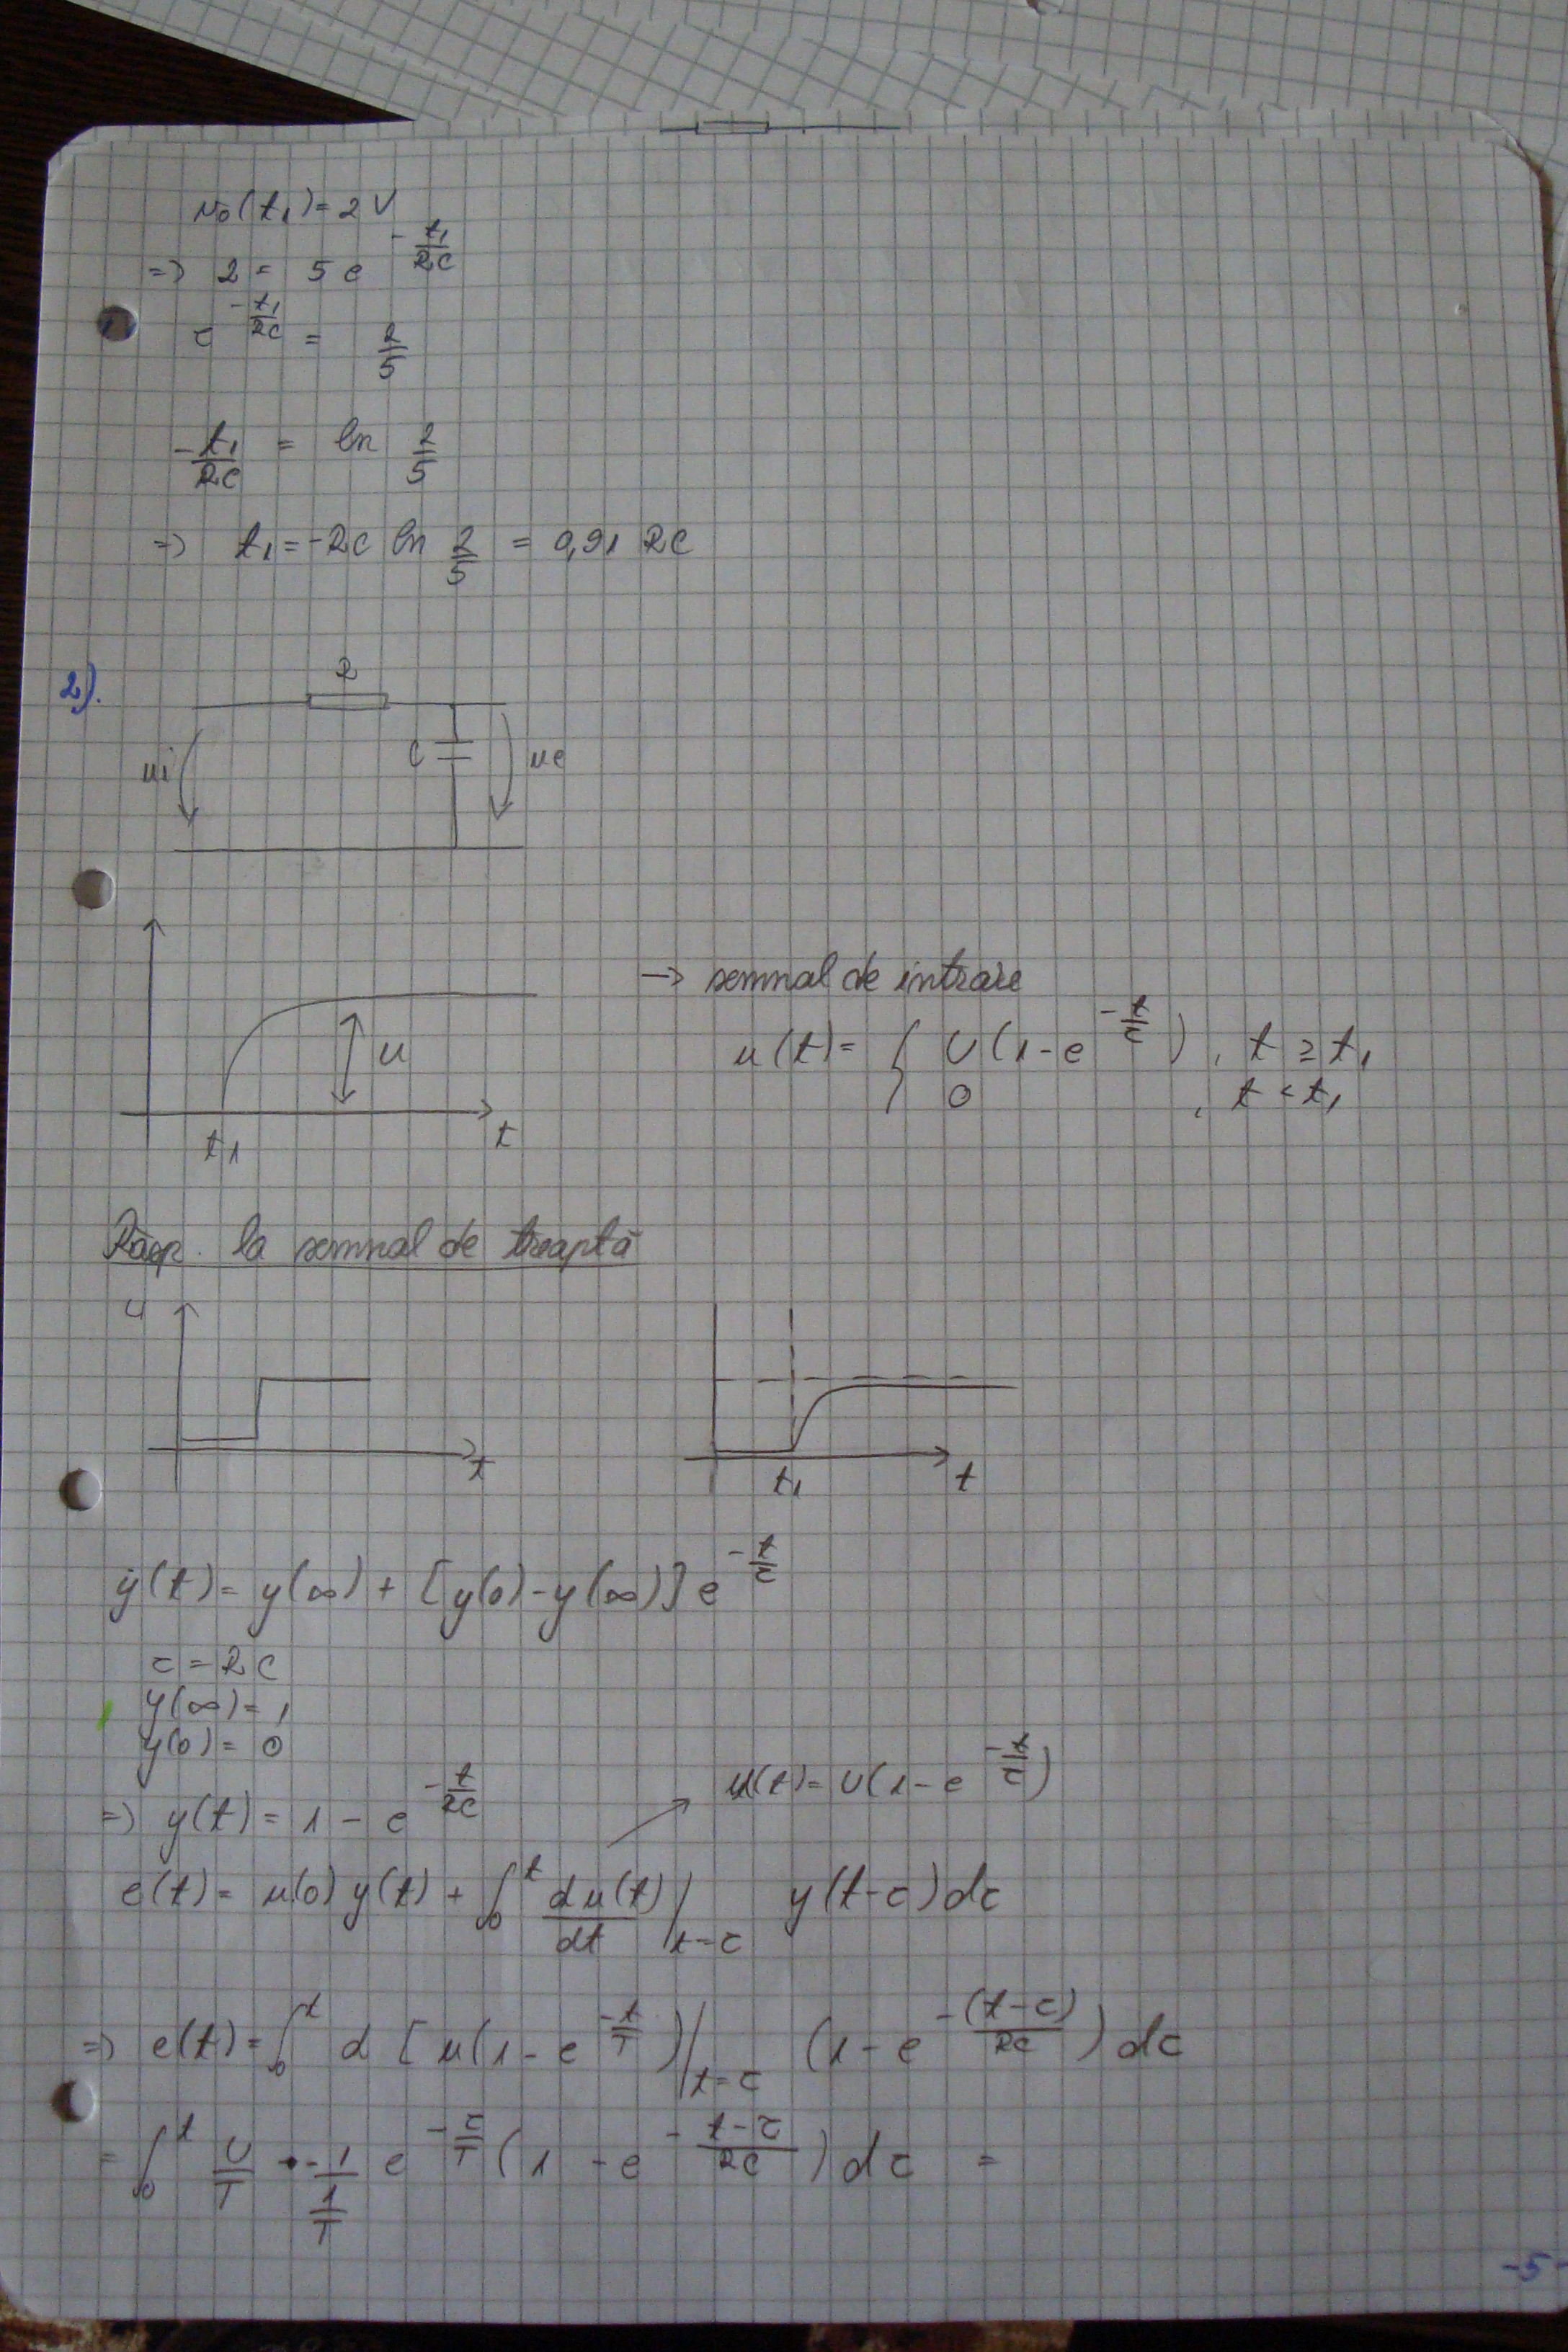 u0(t1)=2V
=> 2 = 5e^(-t1/RC)
e^(-t1/RC) = 2/5
-t1/RC = ln 2/5
=> t1=-RC ln 2/5 = 0,91 RC
2).
R
C
ui
ue
-> semnal de intrare
u(t)= { U(1-e^(-t/τ)), t ≥ t1
0, t < t1
u
t1
t
Răsp. la semnal de treaptă
u
t
t1
t
y(t)= y(∞) + [y(0)-y(∞)] e^(-t/τ)
τ = RC
y(∞)= 1
y(0)= 0
u(t)= U(1-e^(-t/τ))
=> y(t)= 1 - e^(-t/RC)
e(t)= u(0) y(t) + ∫0^t du(t)/dt |t=τ y(t-τ)dτ
=> e(t)= ∫0^t d [u(1-e^(-t/T))|t=τ (1-e^(-(t-τ)/RC)) dτ
= ∫0^t U/T · -1/(1/T) e^(-τ/T) (1 - e^(-(t-τ)/RC)) dτ =
-5-